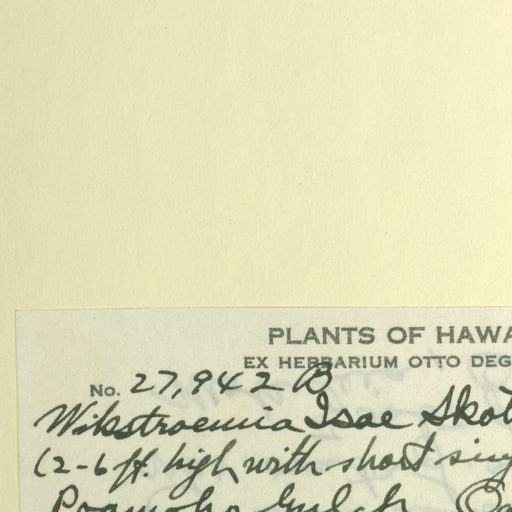 PLANTS OF HAWA
EX HERBARIUM OTTO DEG
No. 27,942 B
Wikstroemia Isae Skot
(2-6 ft. high with short sing
Poamoho Gulch